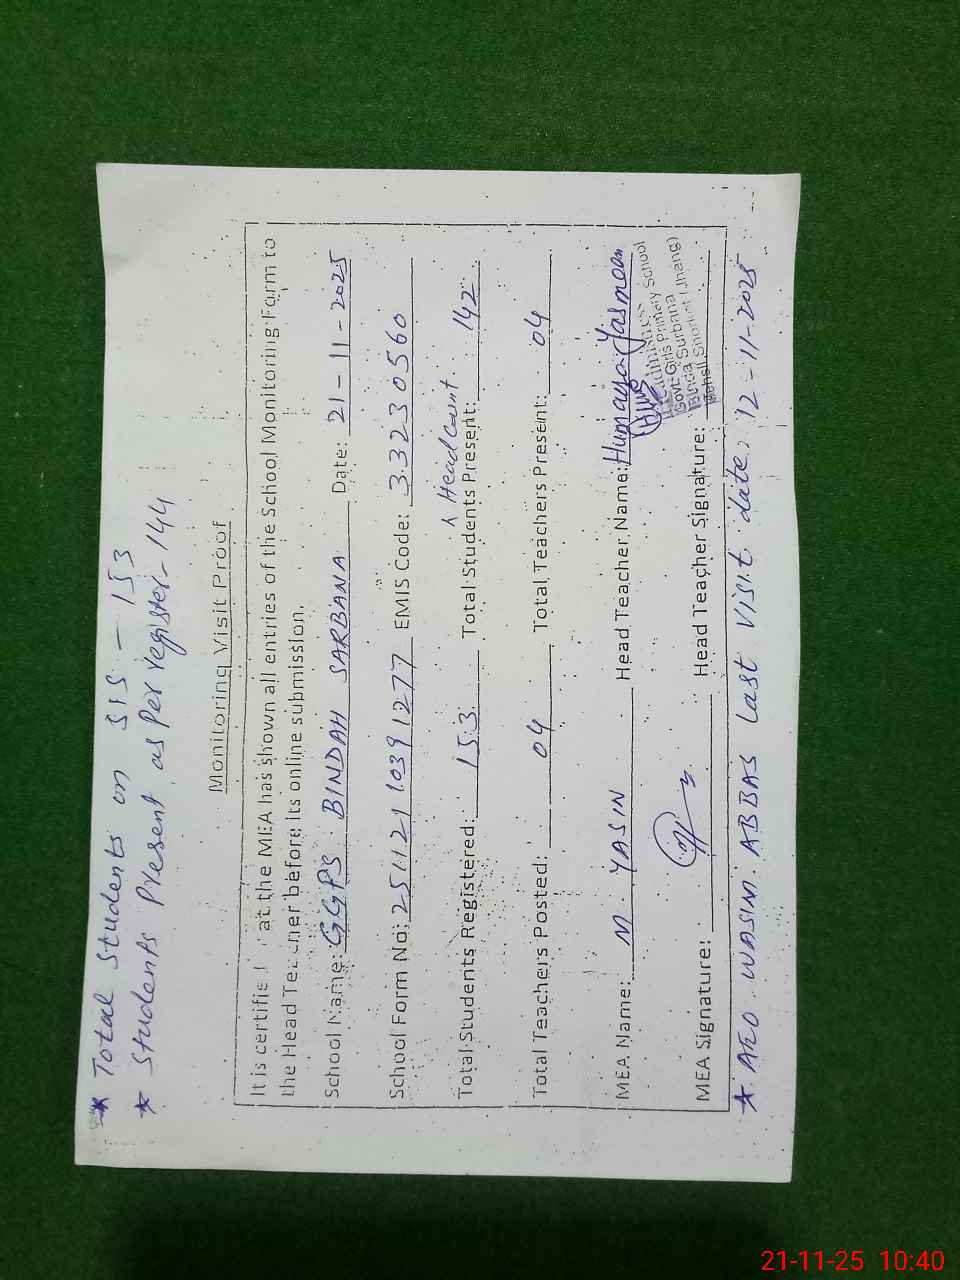 * Total Students on SIS - 153
* Students Present as per register - 144
Monitoring Visit Proof
It is certified that the MEA has shown all entries of the School Monitoring Form to
the Head Teacher before its online submission.
School Name: GGPS BINDAH SARBANA Date: 21-11-2025
School Form No: 25112110391277 EMIS Code: 33230560
^ Head Count
Total Students Registered: 153 Total Students Present: 142
Total Teachers Posted: 04 Total Teachers Present: 04
MEA Name: M. YASIN Head Teacher Name: Humaya Yasmeen
Headmistress
Govt: Girls Primary School
Binda Surbana
Tehsil Shorkot (Jhang)
MEA Signature: Head Teacher Signature:
* AEO WASIM ABBAS last visit date: 12-11-2025
21-11-25 10:40